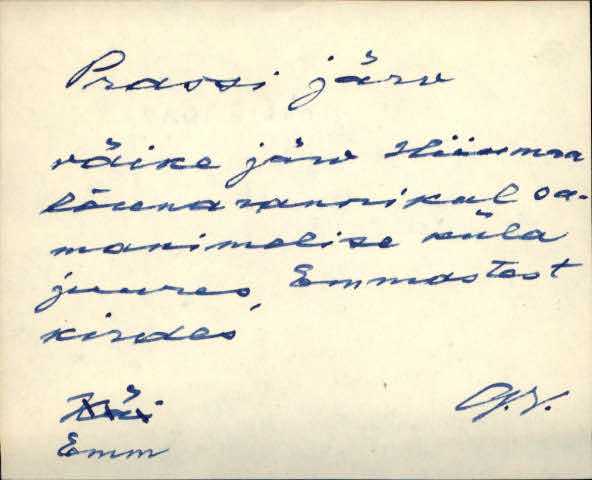 Prassi järv
väike järv Hiiumaa
lõunarannikul sa-
manimelise küla
juures, Emmastest
kirdes
Käi
Emm